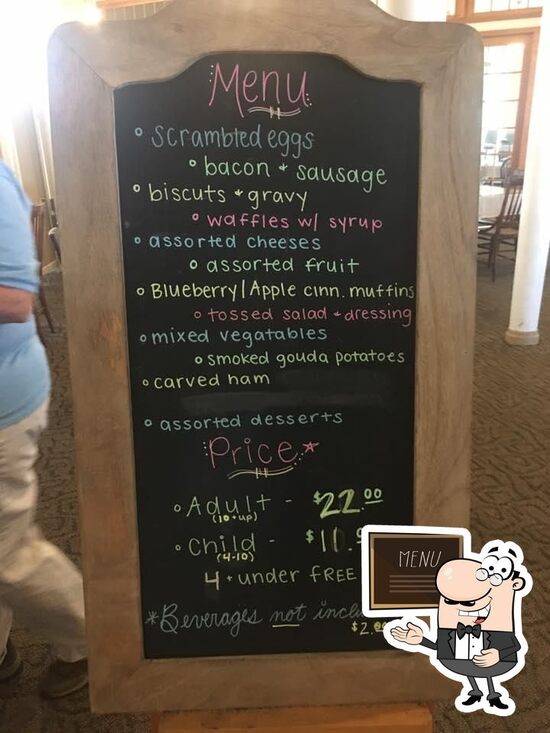 Menu
scrambled eggs
bacon + sausage
biscuts + gravy
waffles w/ syrup
assorted cheeses
assorted fruit
Blueberry/Apple cinn. muffins
tossed salad + dressing
mixed vegatables
smoked gouda potatoes
carved ham
assorted desserts
Price
Adult - $22.00
(10 + up)
Child -
(4-10)
4 + under free
*Beverages not
MENU